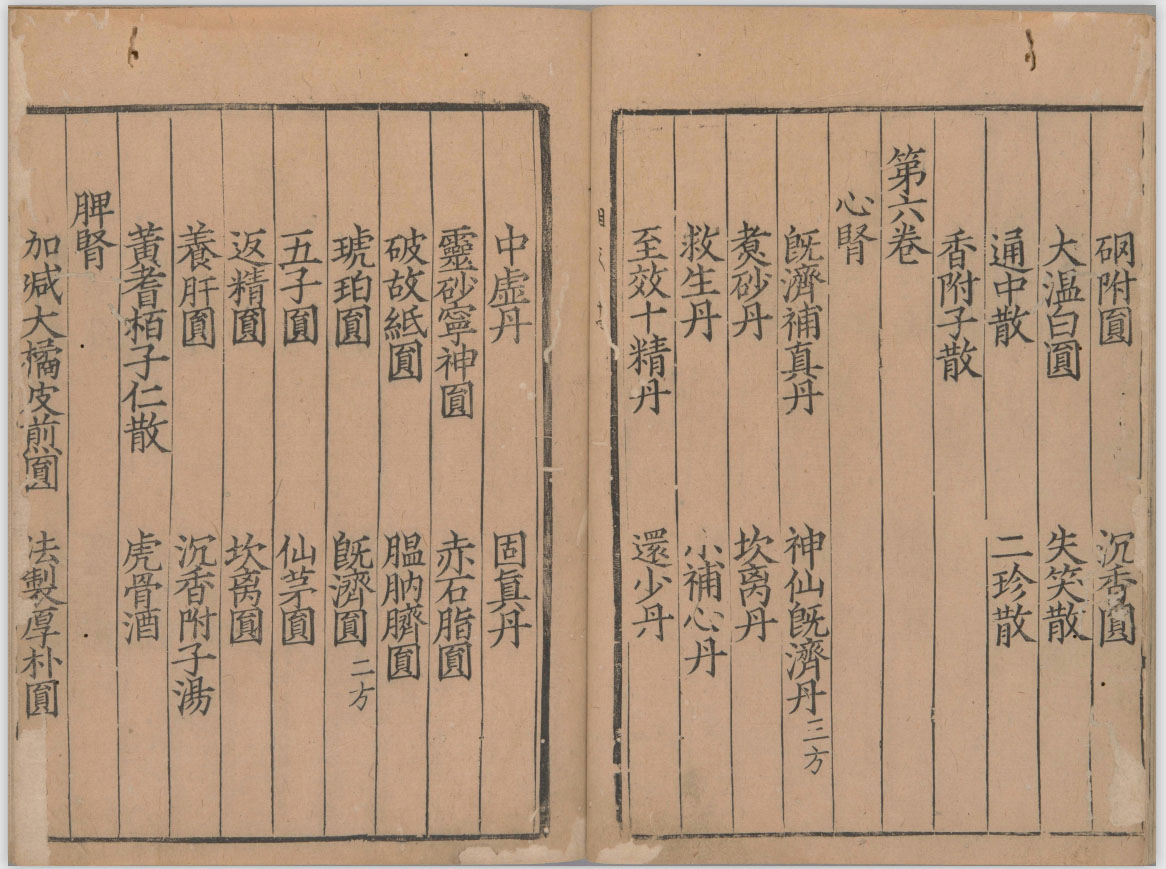 硇附圓 沉香圓
大温白圓 失笑散
通中散 二珍散
香附子散
第六卷
心腎
既濟補真丹 神仙既濟丹三方
煑砂丹 坎离丹
救生丹 小補心丹
至效十精丹 還少丹
中虛丹 固眞丹
靈砂寧神圓 赤石脂圓
破故紙圓 膃肭臍圓
琥珀圓 既濟圓二方
五子圓 仙茅圓
返精圓 坎离圓
養肝圓 沉香附子湯
黃耆栢子仁散 虎骨酒
脾腎
加减大橘皮煎圓 法製厚朴圓